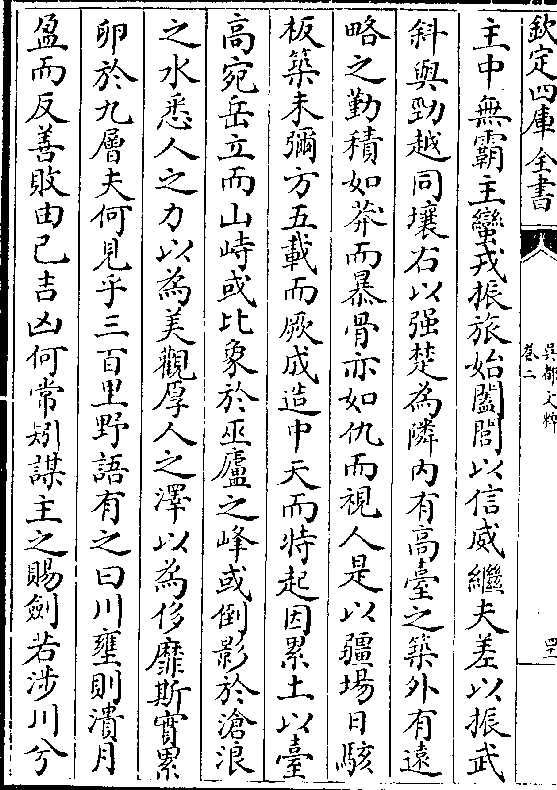 欽定四庫全書
吳都文粹
卷二
四十一
主中無霸主蠻戎振旅始闔閭以信威繼夫差以振武
斜與勁越同壤右以强楚為隣内有高臺之築外有遠
略之勤積如莽而暴骨亦如仇而視人是以疆埸日駭
板築未彌方五載而厥成造中天而特起因累土以臺
高宛岳立而山峙或比象於巫廬之峰或倒影於滄浪
之水悉人之力以為美觀厚人之澤以為侈靡斯實累
卵於九層夫何見乎三百里野語有之曰川壅則潰月
盈而反善敗由己吉凶何常矧謀主之賜劍若涉川兮